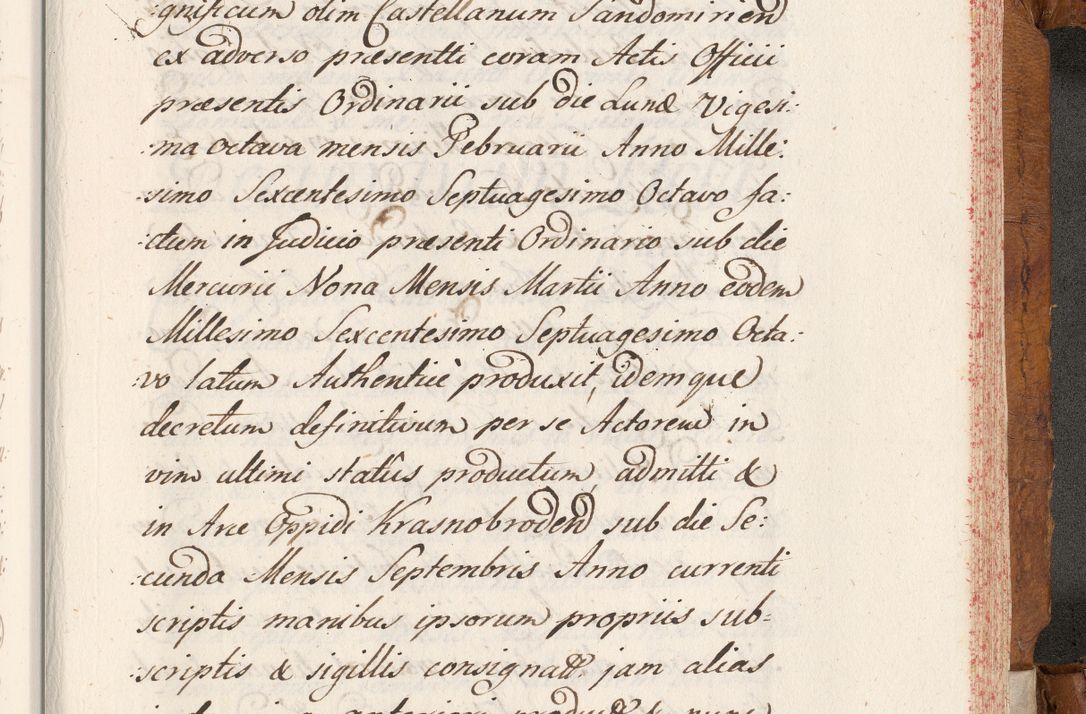 gnificum olim Castellanum Sandomirien
ex adverso præsentti coram Actis Officii
præsentis Ordinarii sub die Lunæ Vigesi:
:ma octava mensis Februarii Anno Mille:
:simo Sexcentesimo Septuagesimo Octavo fa:
:ctum in Judicio præsenti Ordinario sub die
Mercurii Nona Mensis Martii Anno eodem
Millesimo Sexcentesimo Septuagesimo Octa:
:vo latum Authenticè produxit, idemque
decretum definitivum per se Actorem in
vim ultimi statûs productum, admitti &
in Arce Oppidi Krasnobroden sub die Se:
:cunda Mensis Septembris Anno currenti
scriptis manibus ipsorum propriis sub:
:scriptis & sigillis consignatt. jam alias